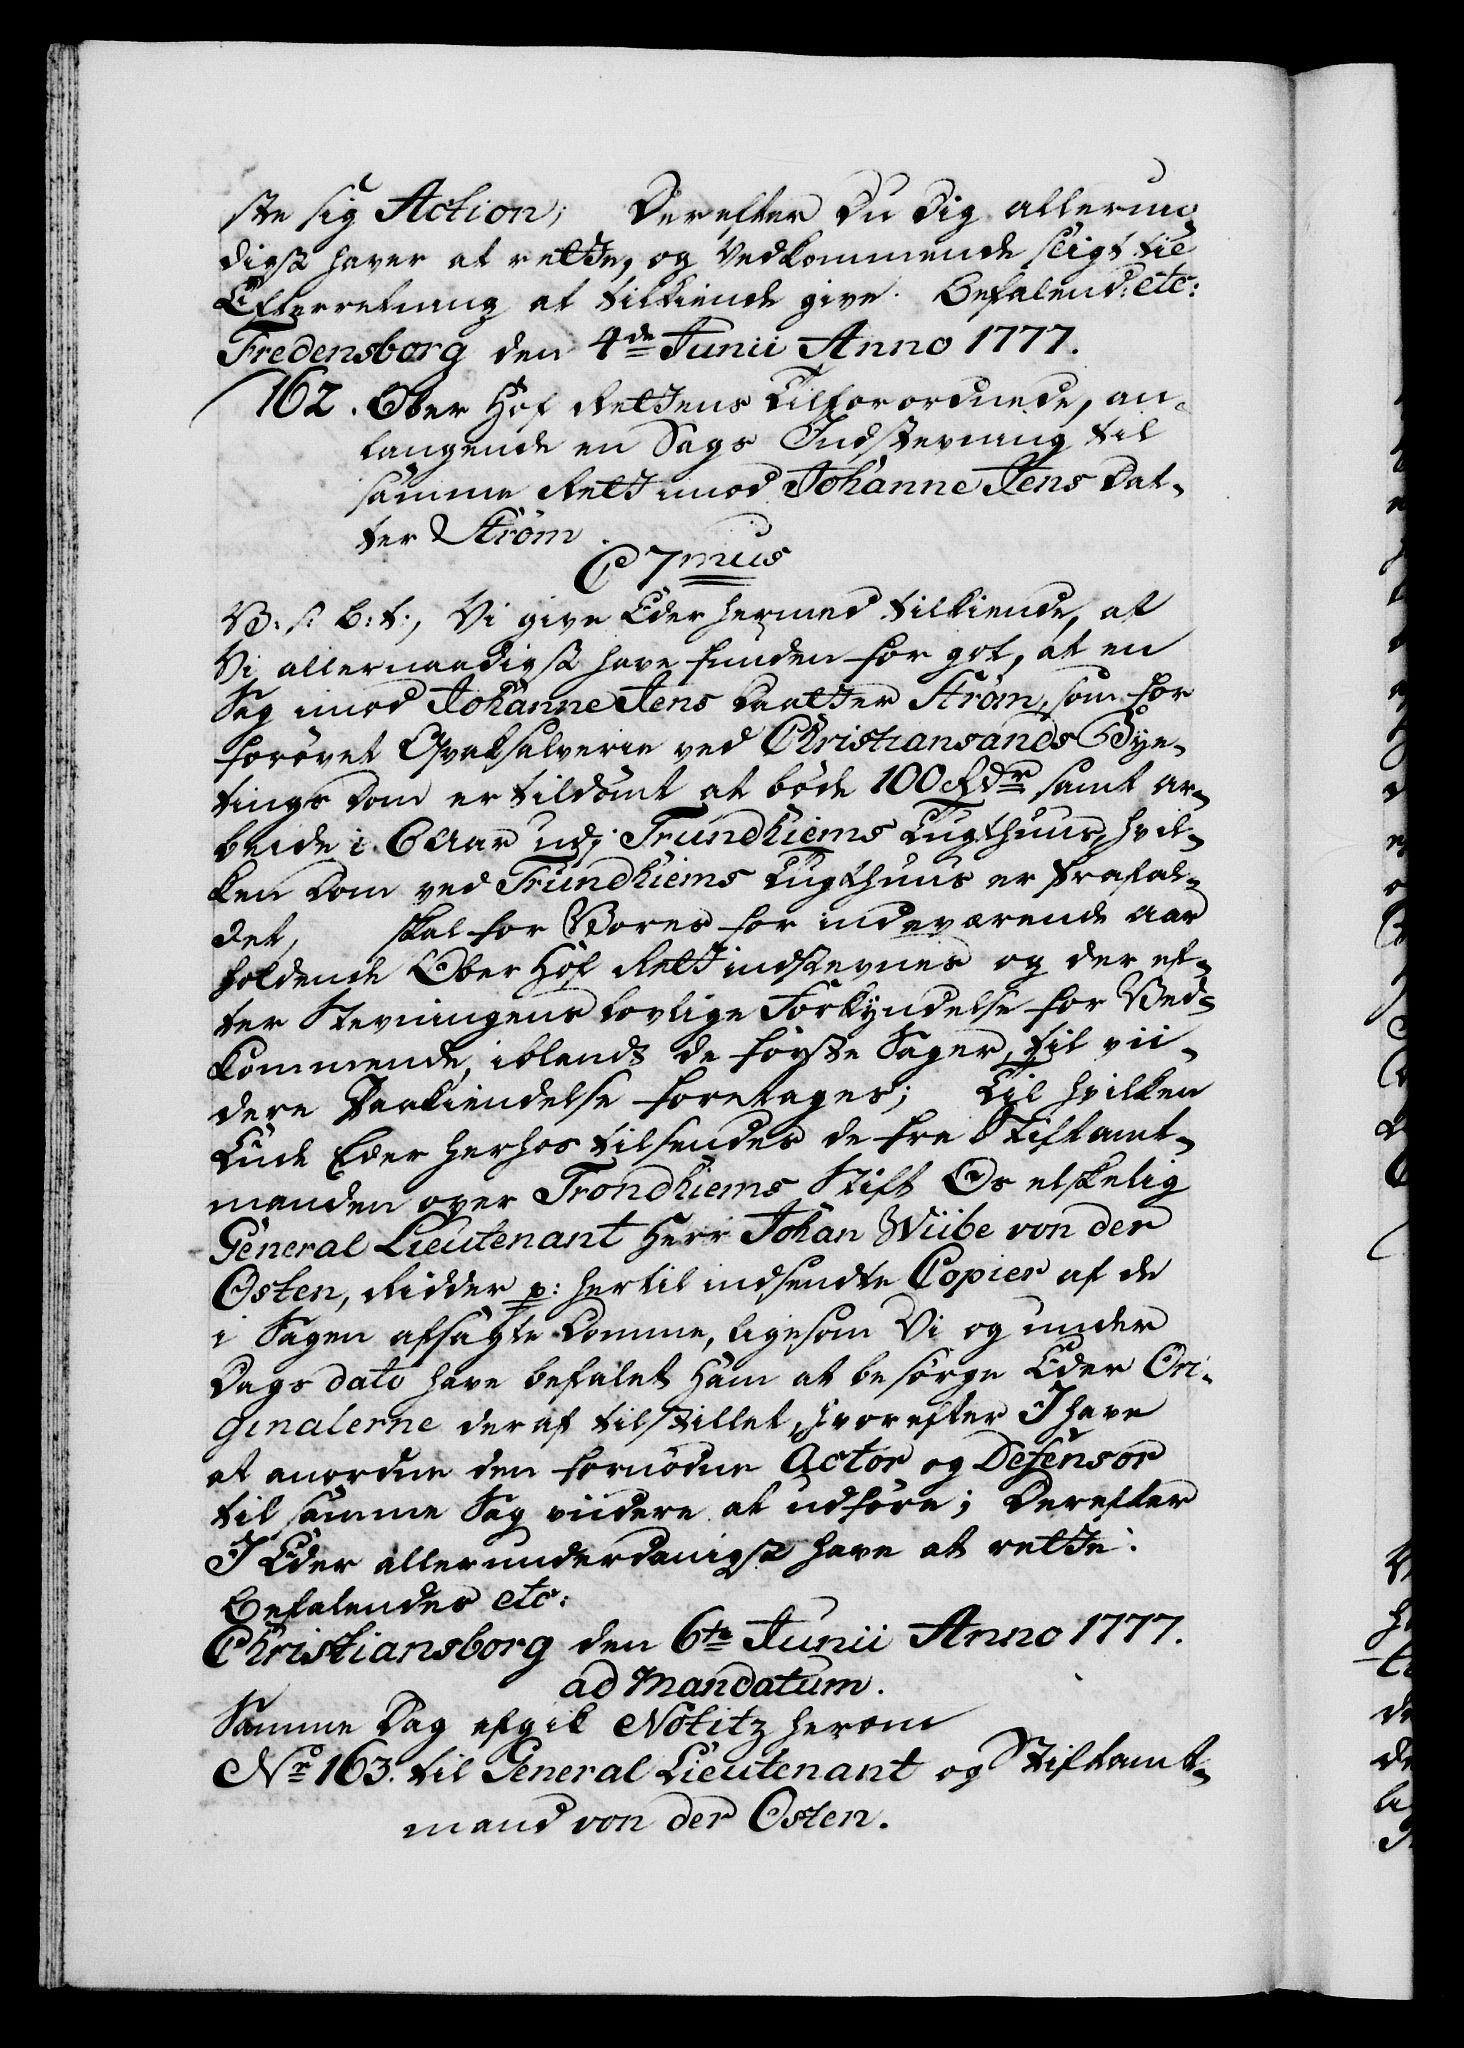 ste sig Action; Derefter Du Dig allerun-
digst haver at rette, og Vedkommende sligt til
Efterretning at tilkiende give. Befalend: etc:
Fredensborg den 4de Junii Anno 1777.
162. Ober Hof Rettens Tilforordnede, an-
langende en Sags Indstevning til
samme Rett imod Johanne Jens Dat-
ter Strøm.
C 7mus
V: s: b: t:, Vi give Eder hermed tilkiende, at
Vi allernaadigst have funden for got, at en
Sag imod Johanne Jens Daatter Strøm, som for
forøvet Qvaksalverie ved Christiansands Bye-
tings Dom er tildømt at bøde 100 Rdr samt ar-
beide i 6 Aar udi Trundhiems Tugthuus, hvil-
ken Dom ved Trundhiems Lugthuus er
det, skal for Vores for indeværende Aar
holdende Ober Hof Rett indstevnes og der ef-
ter Stevningens lovlige Forkyndelse for Ved-
kommende, iblandt de første Sager, til vii-
dere Paakiendelse foretages; Til hvilken
Ende Eder herhos tilsendes de fra Stiftamt-
manden over Trondhiems Stift Os elskelig
General Lieutenant Herr Johan Wiibe von der
Osten, Ridder p: hertil indsendte Copier af de
i Sagen afsagte Domme, ligesom Vi og under
Dags dato have befalet Ham at besørge Eder Ori-
ginalerne deraf tilstillet, hvorefter I have
at anordne den fornødne Actor og Defensor
til samme Sag viidere at udføre; Derefter
I Eder allerunderdanigst have at rette.
Befalendes etc:
Christiansborg den 6te Junii Anno 1777.
ad Mandatum.
Samme Dag afgik Notitz herom
No 163. til General Lieutenant og Stiftamt-
mand von der Osten.